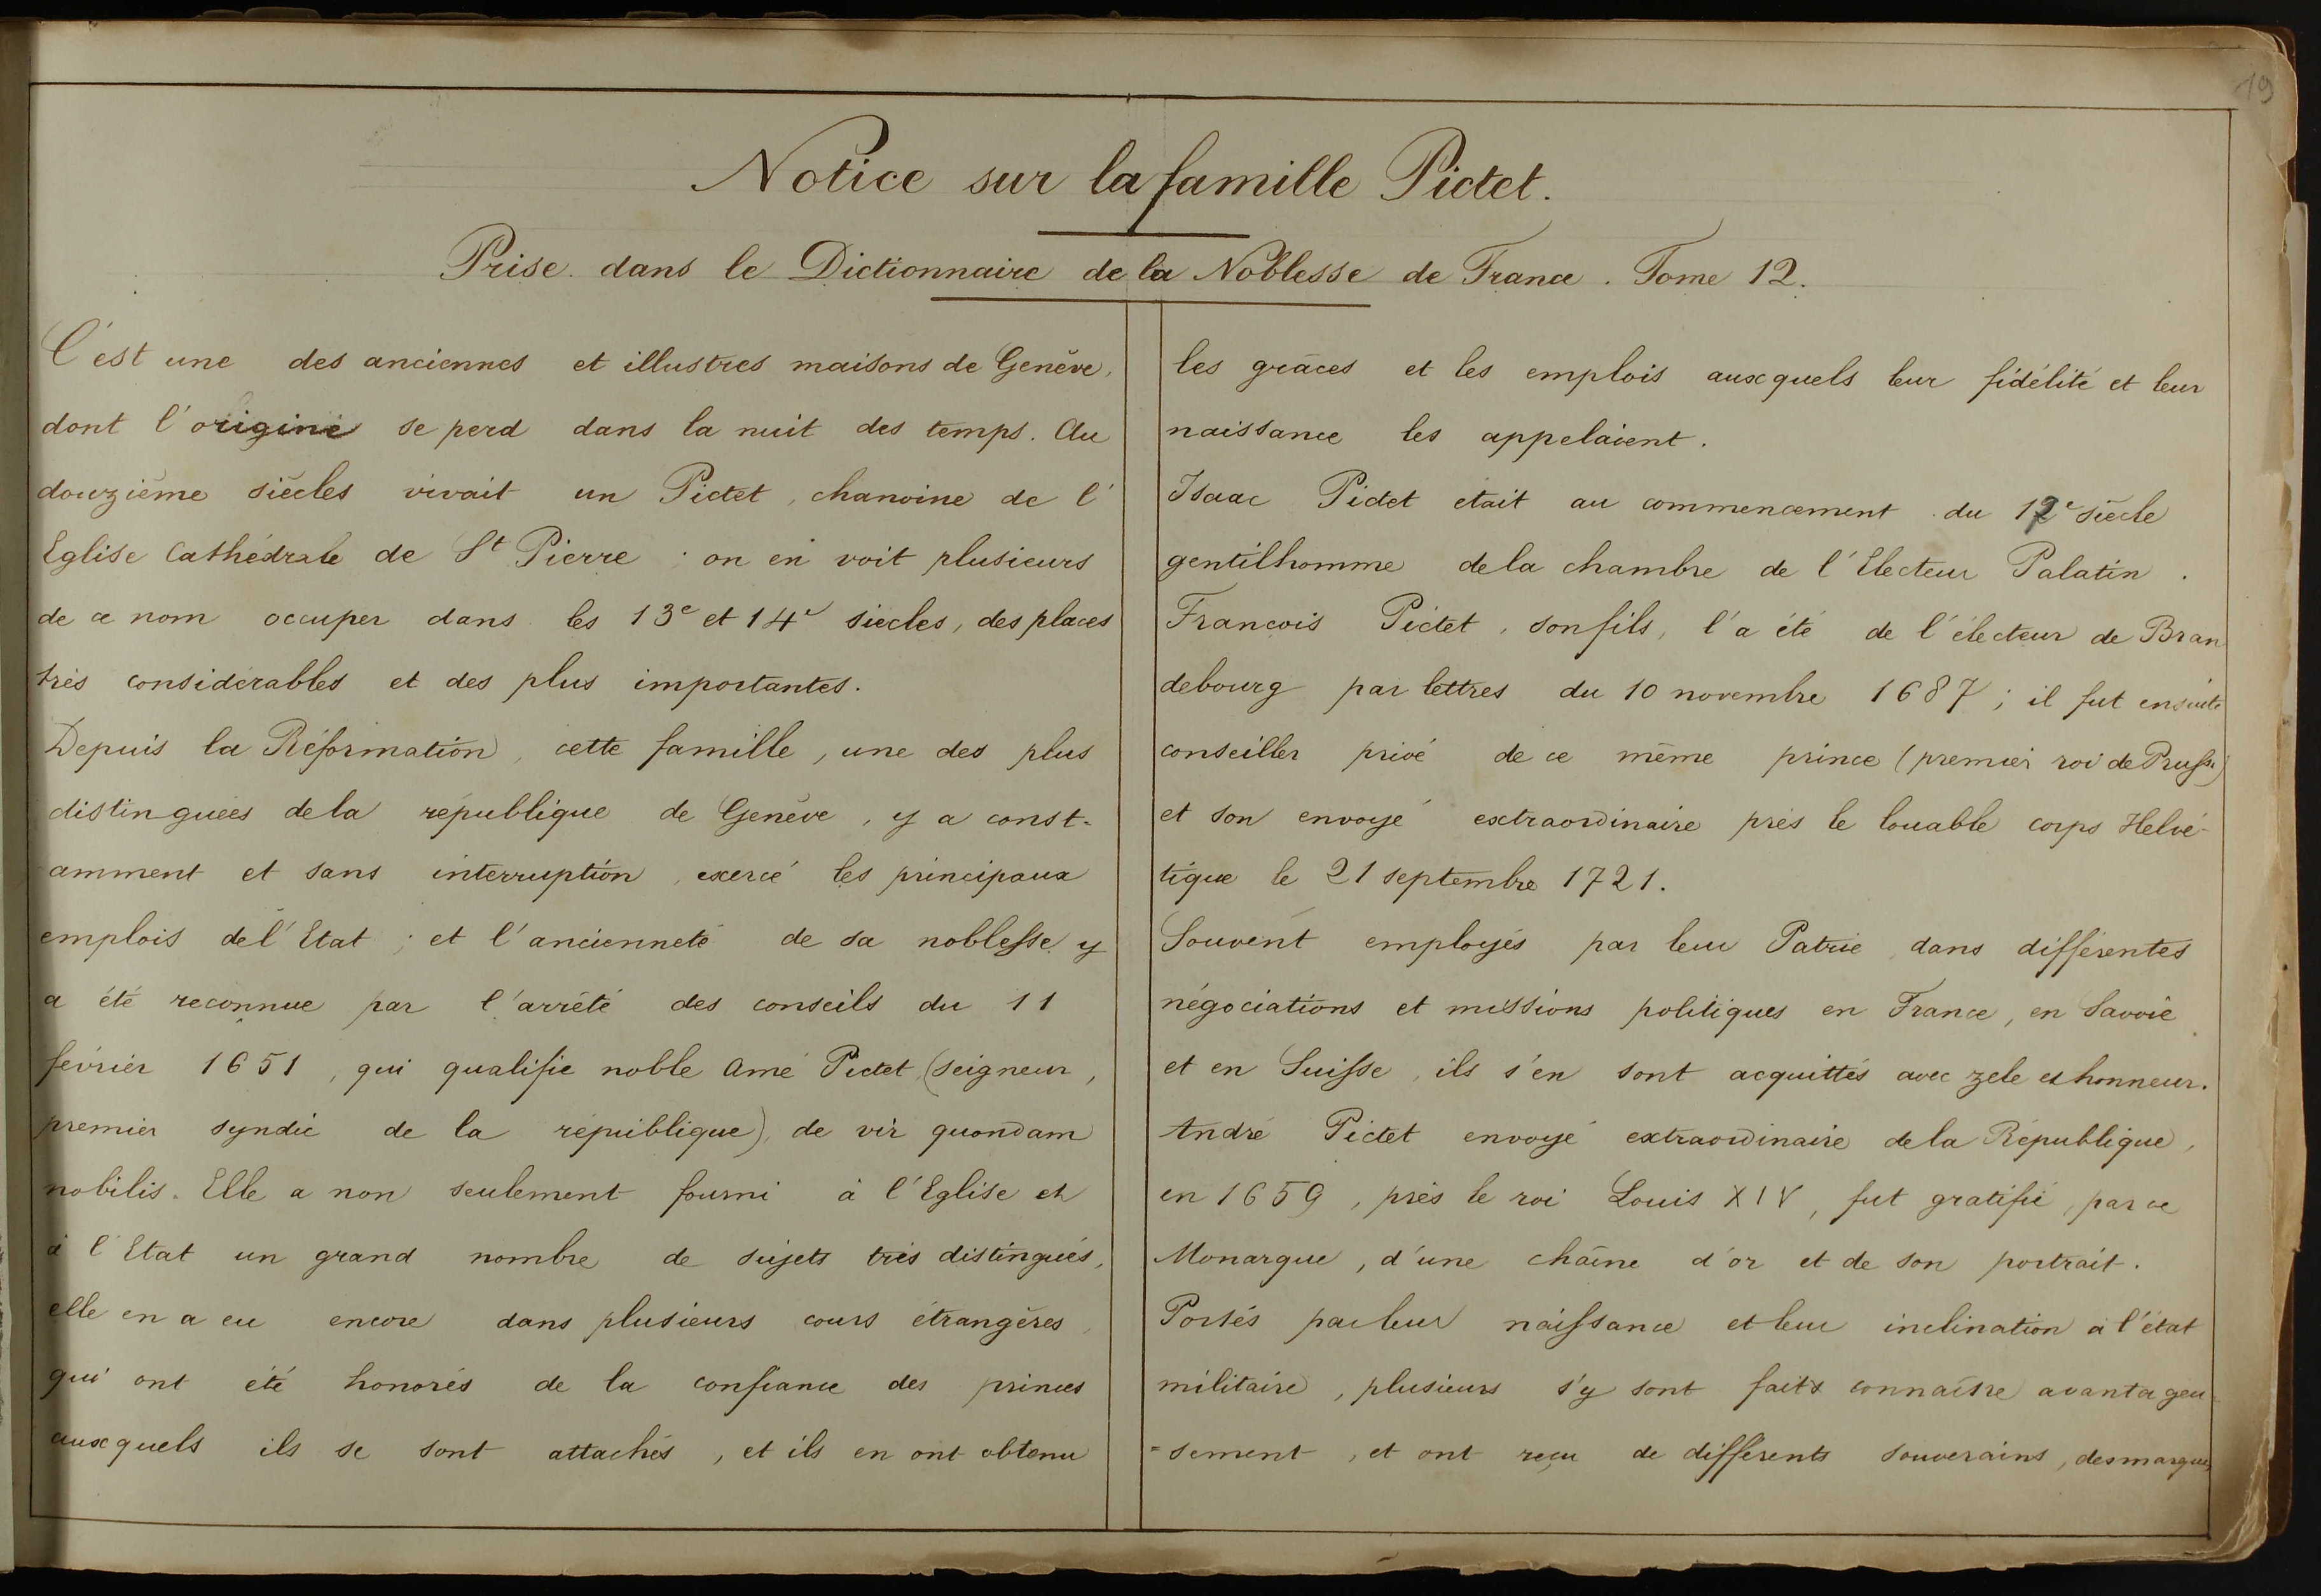 19
Notice sur la famille Pictet.
Prise dans le Dictionnaire de la Noblesse de France. Tome 12.
C'est une des anciennes et illustres maisons de Genève,
dont l'origine se perd dans la nuit des temps. Au
douzième siècles vivait un Pictet, chanoine de l'
Eglise Cathédrale de St Pierre ; on en voit plusieurs
de ce nom occuper dans les 13e et 14e siècles, des places
très considérables et des plus importantes.
Depuis la Réformation, cette famille, une des plus
distinguées de la république de Genève, y a const-
amment et sans interruption, exercé les principaux
emplois de l'Etat ; et l'ancienneté de sa noblesse y
a été reconnue par l'arrêté des conseils du 11
février 1651, qui qualifie noble Amé Pictet, (seigneur,
premier syndic de la république), de vir quondam
nobilis. Elle a non seulement fourni à l'Eglise et
à l'Etat un grand nombre de sujets très distingués,
elle en a eu encore dans plusieurs cours étrangères,
qui ont été honorés de la confiance des princes
auxquels ils se sont attachés, et ils en ont obtenu
les grâces et les emplois auxquels leur fidélité et leur
naissance les appelaient.
Isaac Pictet etait au commencement du 17e siècle
gentilhomme de la chambre de l'Electeur Palatin.
Francois Pictet, son fils, l'a été de l'électeur de Bran
debourg par lettres du 10 novembre 1687 ; il fut ensuite
conseiller privé de ce même prince (premier roi de Prusse)
et son envoyé extraordinaire près le louable corps Helvé-
tique le 21 septembre 1721.
Souvent employés par leur Patrie dans différentes
négociations et missions politiques en France, en Savoie
et en Suisse, ils s'en sont acquittés avec zele et honneur.
André Pictet envoyé extraordinaire de la République,
en 1659, près le roi Louis XIV, fut gratifié, par ce
Monarque, d'une chaîne d'or et de son portrait.
Portés par leur naissance et leur inclination à l'état
militaire, plusieurs s'y sont faits connaître avantageu
=sement, et ont reçu de différents souverains, des marques